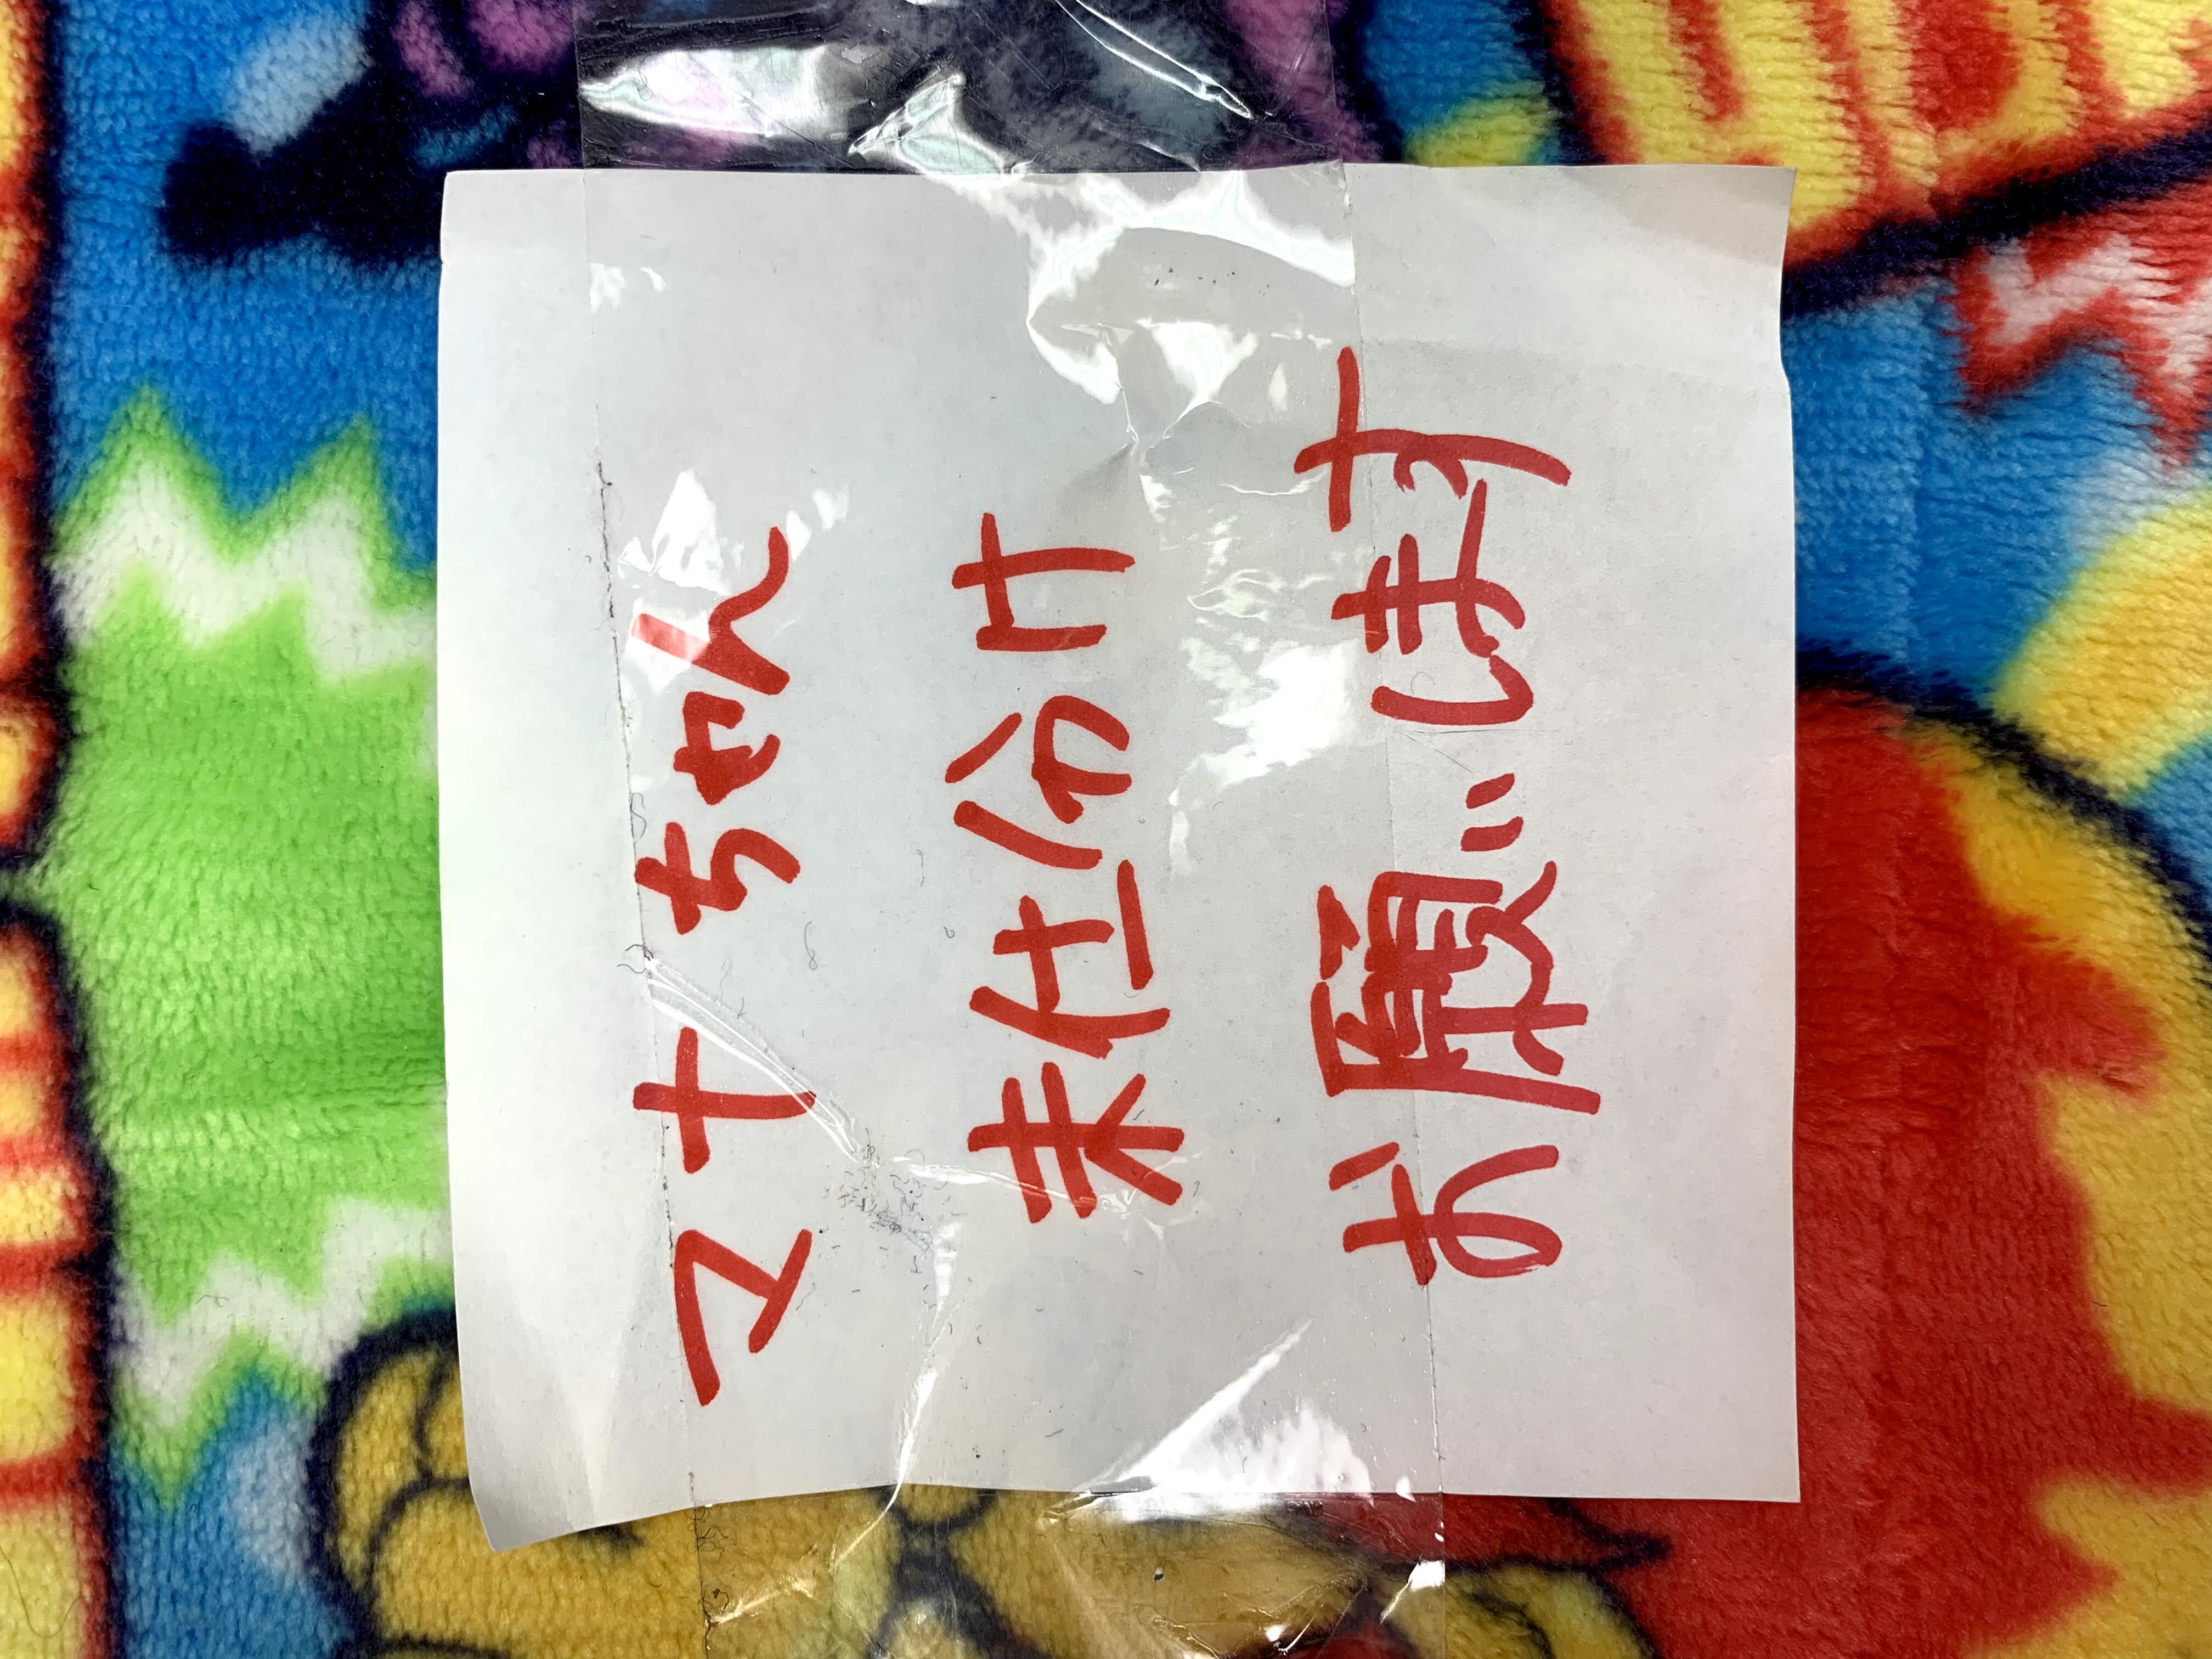 マナちゃん
未仕分け
お願いします